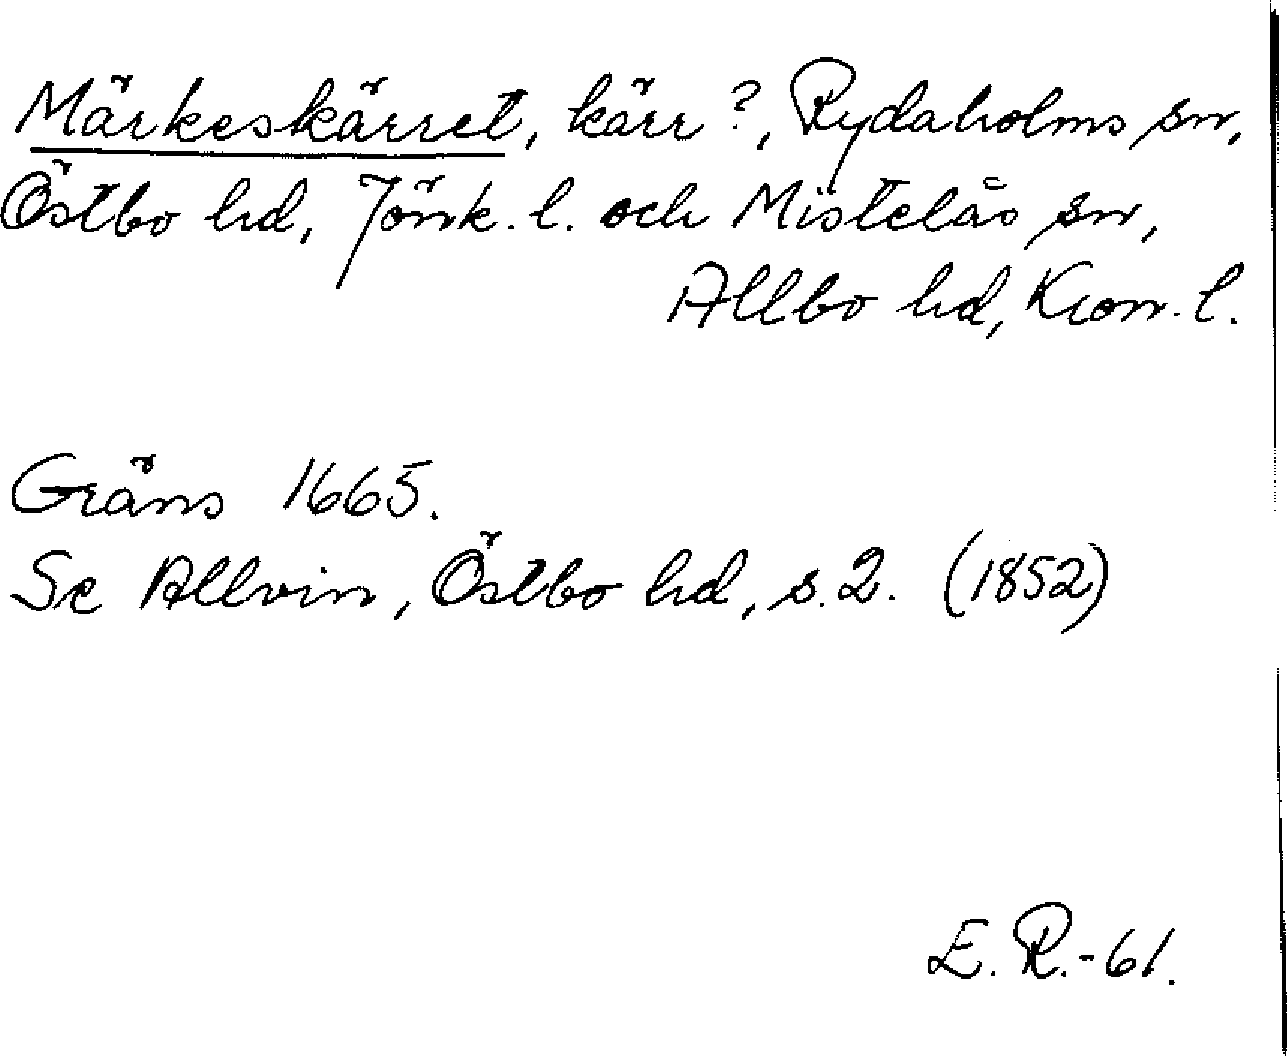 Märkeskärret, kärr?, Rydaholms sn,
Östbo hd, Jönk. l. och Mistelås sn,
Allbo hd, Kron. l.
Gräns 1665.
Se Allvin, Östbo hd, s. 2. (1852)
E. R.-61.